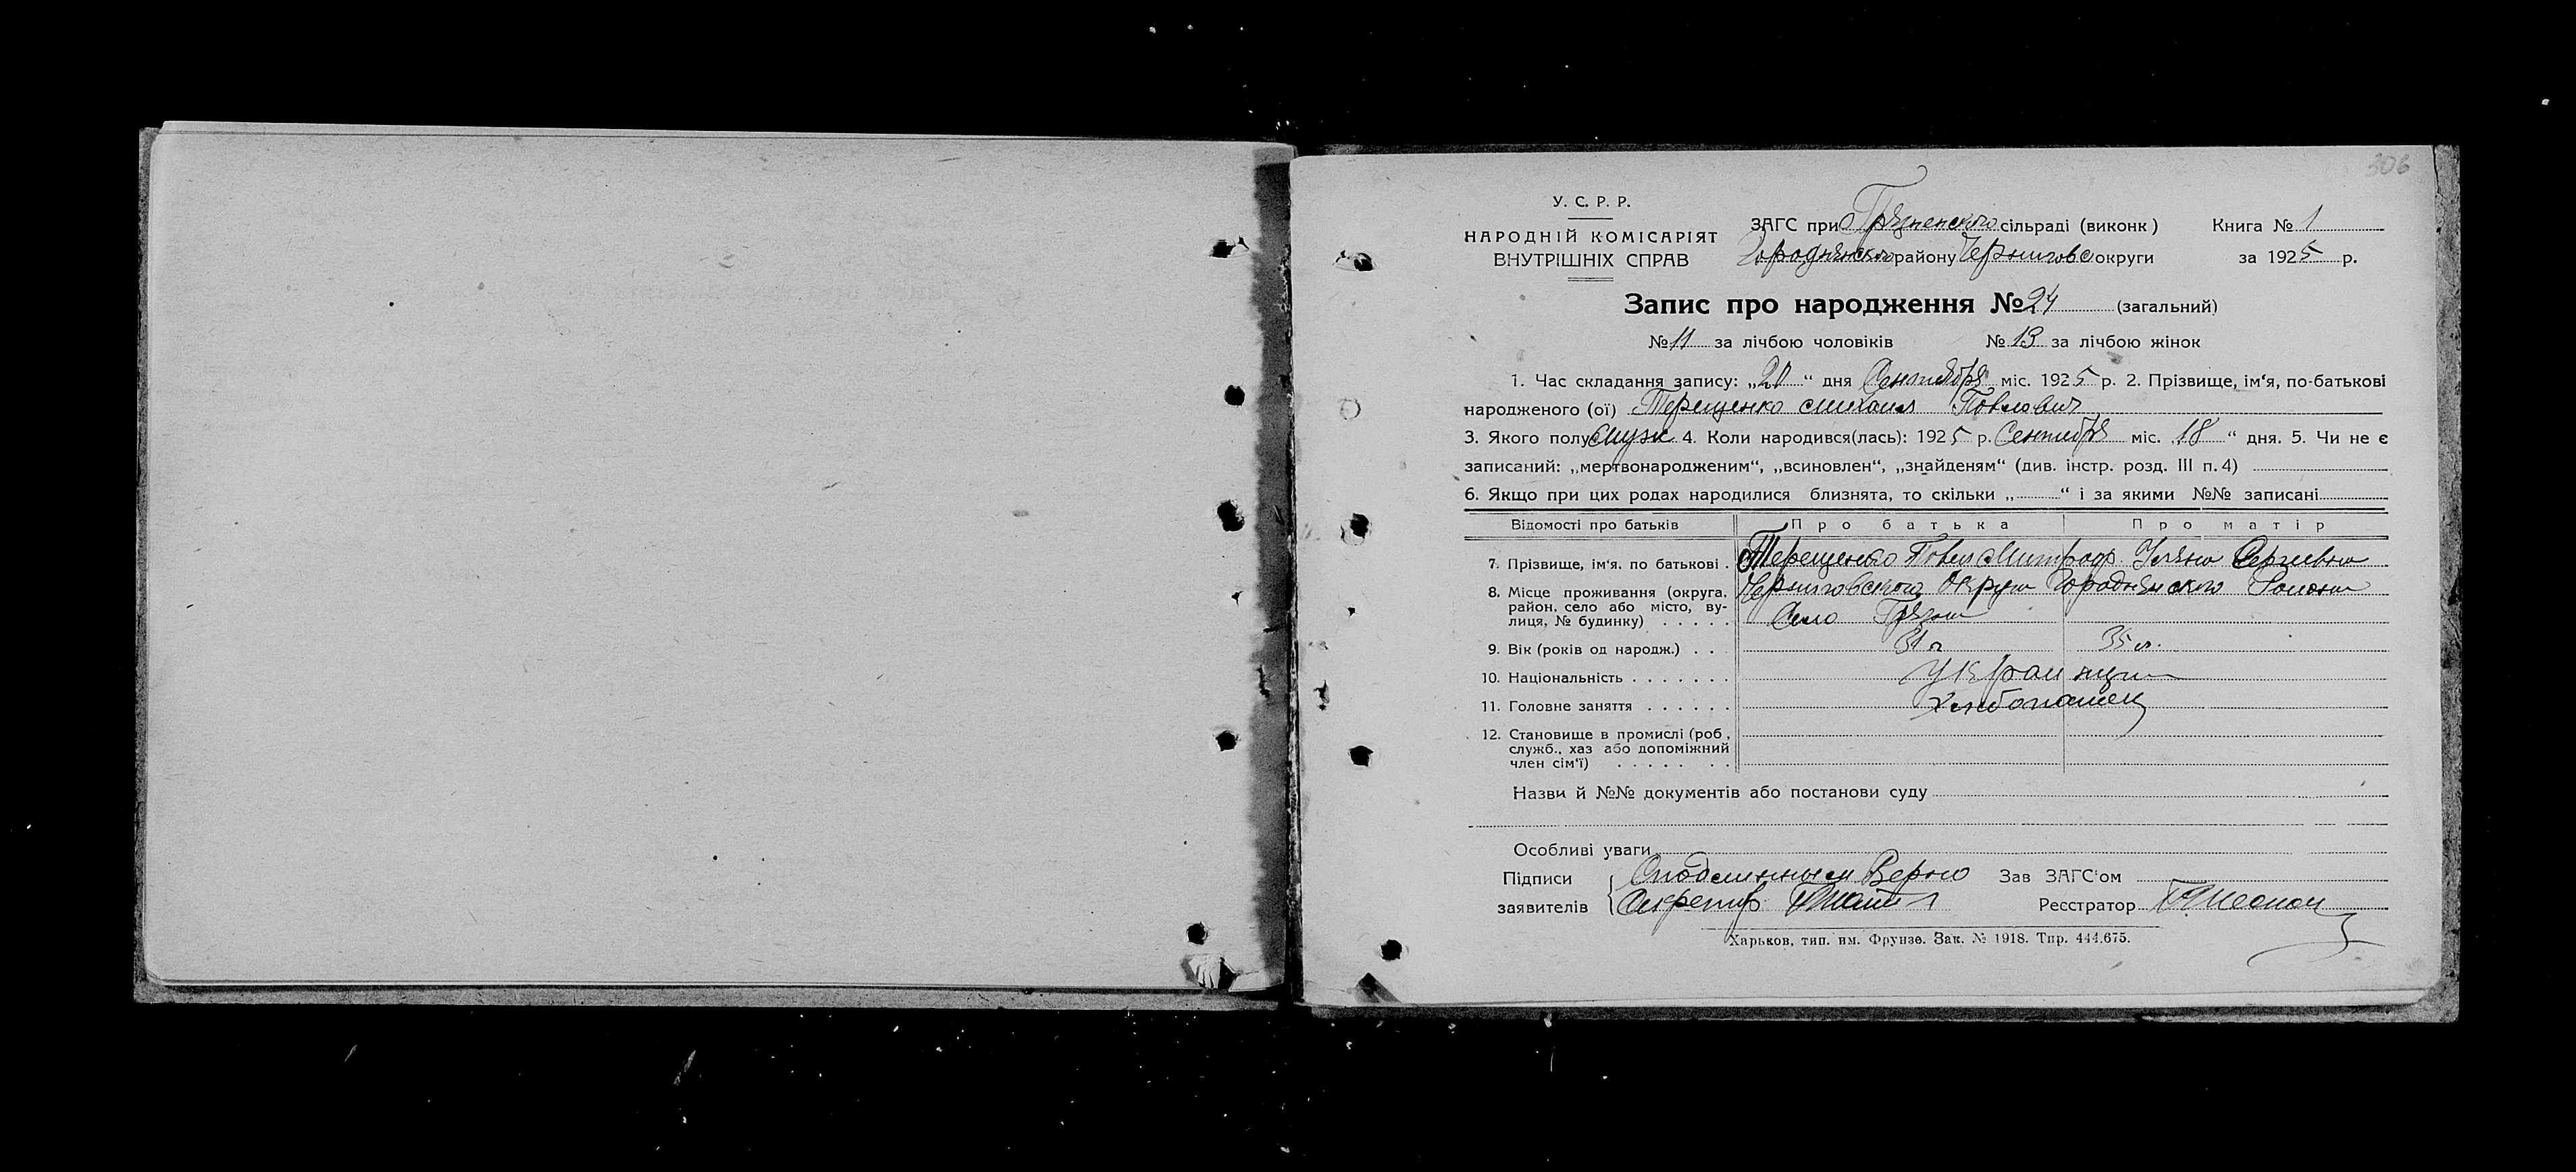 306
У. С. Р. Р.
НАРОДНІЙ КОМІСАРІЯТ
ВНУТРІШНІХ СПРАВ
ЗАГС при Грязненского сільраді (виконк) Книга № 1
Городнянского району Чернигово округи за 1925 р.
Запис про народження № 24 (загальний)
№ 11 за лічбою чоловіків № 13 за лічбою жінок
1. Час складання запису: „20“ дня Сентября міс. 1925 р. 2. Прізвище, ім‘я, по-батькові
народженого (ої) Терещенко Михаил Павлович
3. Якого полу Муж 4. Коли народився(лась): 1925 р. Сентября міс. 18 “ дня. 5. Чи не є
записаний: „мертвонародженим“, „всиновлен“, „знайденям“ (див. інстр. розд. III п. 4)
6. Якщо при цих родах народилися близнята, то скільки „ “ і за якими №№ записані
Відомості про батьків Про батька Про матір
7. Прізвище, ім‘я, по батькові . Терещенко Павел Митроф. Ульяна Сергиевна
8. Місце проживання (округа, район, село або місто, вулиця, № будинку) . . . . . Черниговского Округа Городнянского Района
Село Грязна
9. Вік (років од народж.) . . . 31 л 35 л.
10. Національність . . . . . . . Украинцы
11. Головне заняття . . . . . . Хлебопашец
12. Становище в промислі (роб., служб., хаз або допоміжний член сім‘ї) . . . . . . .
Назви й №№ документів або постанови суду
Особливі уваги
Підписи заявителів С подлинным Верно Зав ЗАГС‘ом
Секретарь Реєстратор
Харьков, тип. им. Фрунзе. Зак. № 1918. Тир. 444.675.